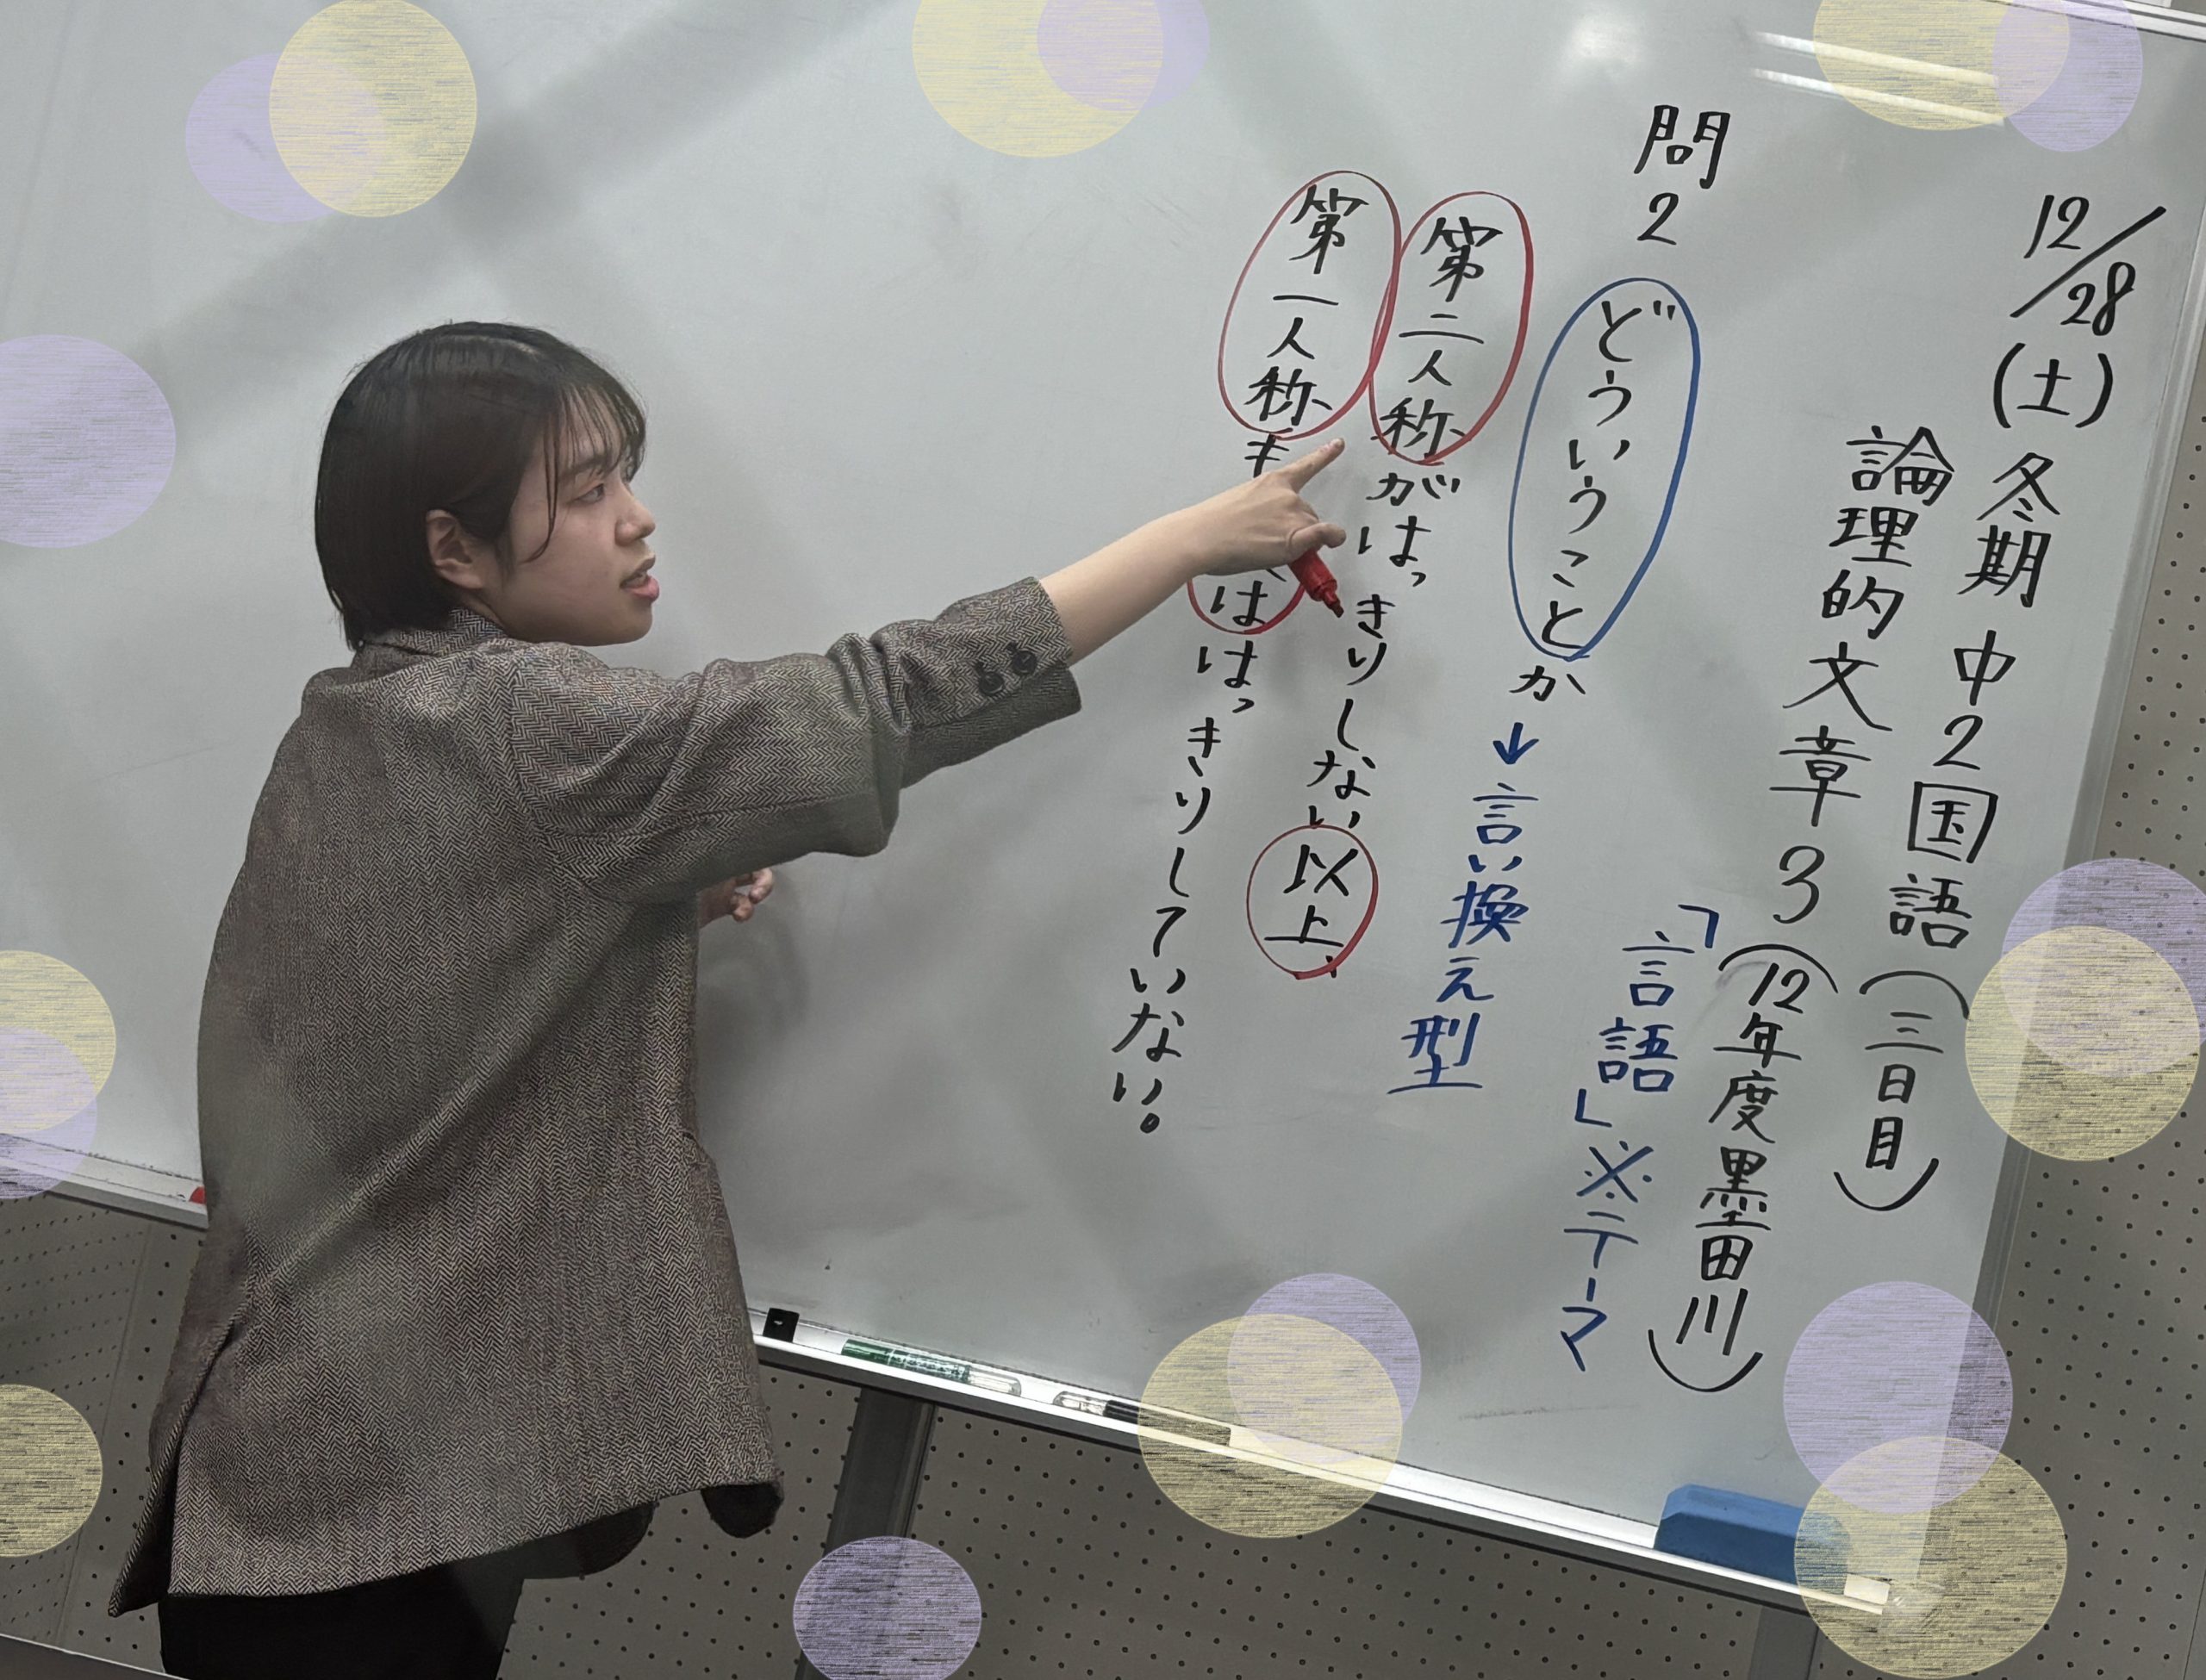 12/28(土)冬期 中2国語(三日目)
論理的文章3(12年度墨田川)
「言語」※テーマ
問2 どういうことか→言い換え型
第二人称がはっきりしない以上、
第一人称も
ははっきりしていない。